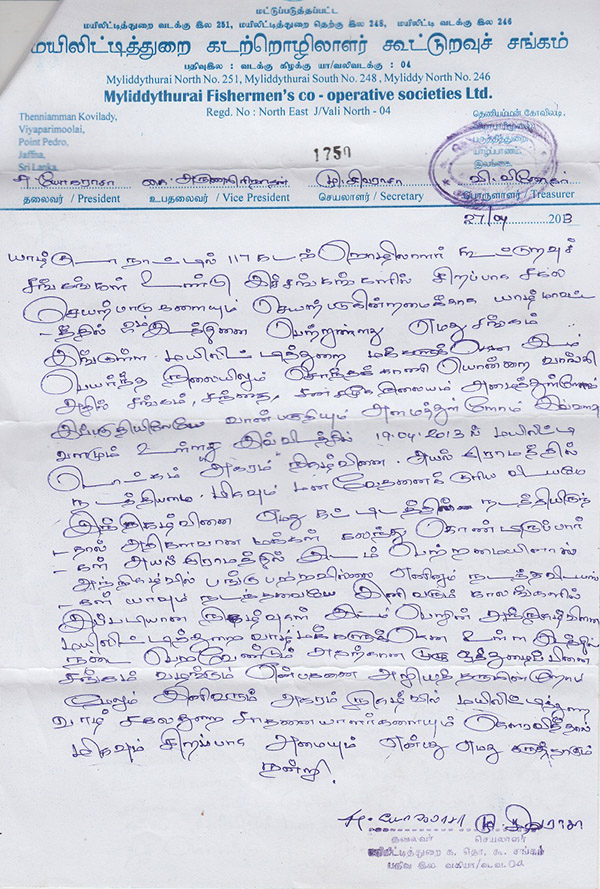 மட்டுப்படுத்தப்பட்ட
மயிலிட்டித்துறை வடக்கு இல 251, மயிலிட்டித்துறை தெற்கு இல 248, மயிலிட்டி வடக்கு இல 246
மயிலிட்டித்துறை கடற்றொழிலாளர் கூட்டுறவுச் சங்கம்
பதிவுஇல : வடக்கு கிழக்கு யா/வலிவடக்கு : 04
Myliddythurai North No. 251, Myliddythurai South No. 248, Myliddy North No. 246
Myliddythurai Fishermen's co - operative societies Ltd.
Regd. No : North East J/Vali North - 04
Thenniamman Kovilady,
Viyaparimoolai,
Point Pedro,
Jaffna,
Sri Lanka
தெணியம்மன் கோவிலடி,
வியாபாரிமூலை
பருத்தித்துறை
யாழ்ப்பாணம்
இலங்கை
1750
தலைவர் / President
உபதலைவர் / Vice President
செயலாளர் / Secretary
பொருளாளர் / Treasurer
27/04 2013
யாழ் குடா நாட்டில் 117 கடற்றொழிலாளர் கூட்டுறவுச்
சங்கங்கள் உண்டு இச்சங்கங்களில் சிறப்பாக சகல
செயற்பாடுகளையும் செயற்படுகின்றமைக்காக யாழ்மாவட்
-டத்தில் இடத்தினை பெற்றுள்ளது எமது சங்கம்
இங்குள்ள மயிலிட்டித்துறை மக்களுக்கென இடம்
பெயர்ந்த நிலையிலும் சொந்தக்காணி யொன்றை வாங்கி
அதில் சங்கம், சந்தை, நிலையம் அமைத்துள்ளோம்
இப்பகுதியிலேயே வான்பகுதியும் அமைத்துள்ளோம்
வளமும் உள்ளது இவ்விடத்தில் 19.04.2013ல் மயிலிட்டி
அகரம் நிகழ்வினை அயல் கிராமத்தில்
நடத்தியமை மிகவும் மனவேதனைக்குரிய விடயமே
இந்நிகழ்வினை எமது கட்டிடத்தில் நடத்தியிருந்
-தால் அதிகளவான மக்கள் கலந்து கொண்டிருப்பார்
-கள் அயல் கிராமத்தில் இடம் பெற்றமையினால்
அந்நிகழ்வில் பங்குபற்றவில்லை எனினும் நடந்தவிடயங்
-கள் யாவும் நடந்தவையே இனிவரும் காலங்களில்
இப்படியான நிகழ்வுகள் இடம் பெறின் அந்நிகழ்வினை
மயிலிட்டித்துறை வாழ் மக்களுக்கென உள்ள இடத்தில்
நடை பெறவேண்டும் அதற்கான முழு ஒத்துழைப்பினை
சங்கம் வழங்கும் என்பதனை அறியத்தருகின்றோம்
மேலும் இனிவரும் அகரம் நிகழ்வில் மயிலிட்டித்துறை
வாழ் சகலதுறை சாதனையாளர்களையும் கௌரவித்தால்
மிகவும் சிறப்பாக அமையும் என்பது எமது கருத்தாகும்
நன்றி
தலைவர் செயலாளர்
மயிலிட்டித்துறை க. தொ. கூ. சங்கம்
பதிவு இல வகியா/வ.வ. 04